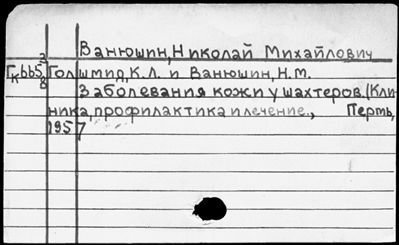 Ванюшин, Николай Михайлович
3
Гк665 Голшмид, К.Л. и Ванюшин, Н.М.
8
Заболевания кожи у шахтеров. (Кли-
ника, профилактика и лечение., Пермь,
1957